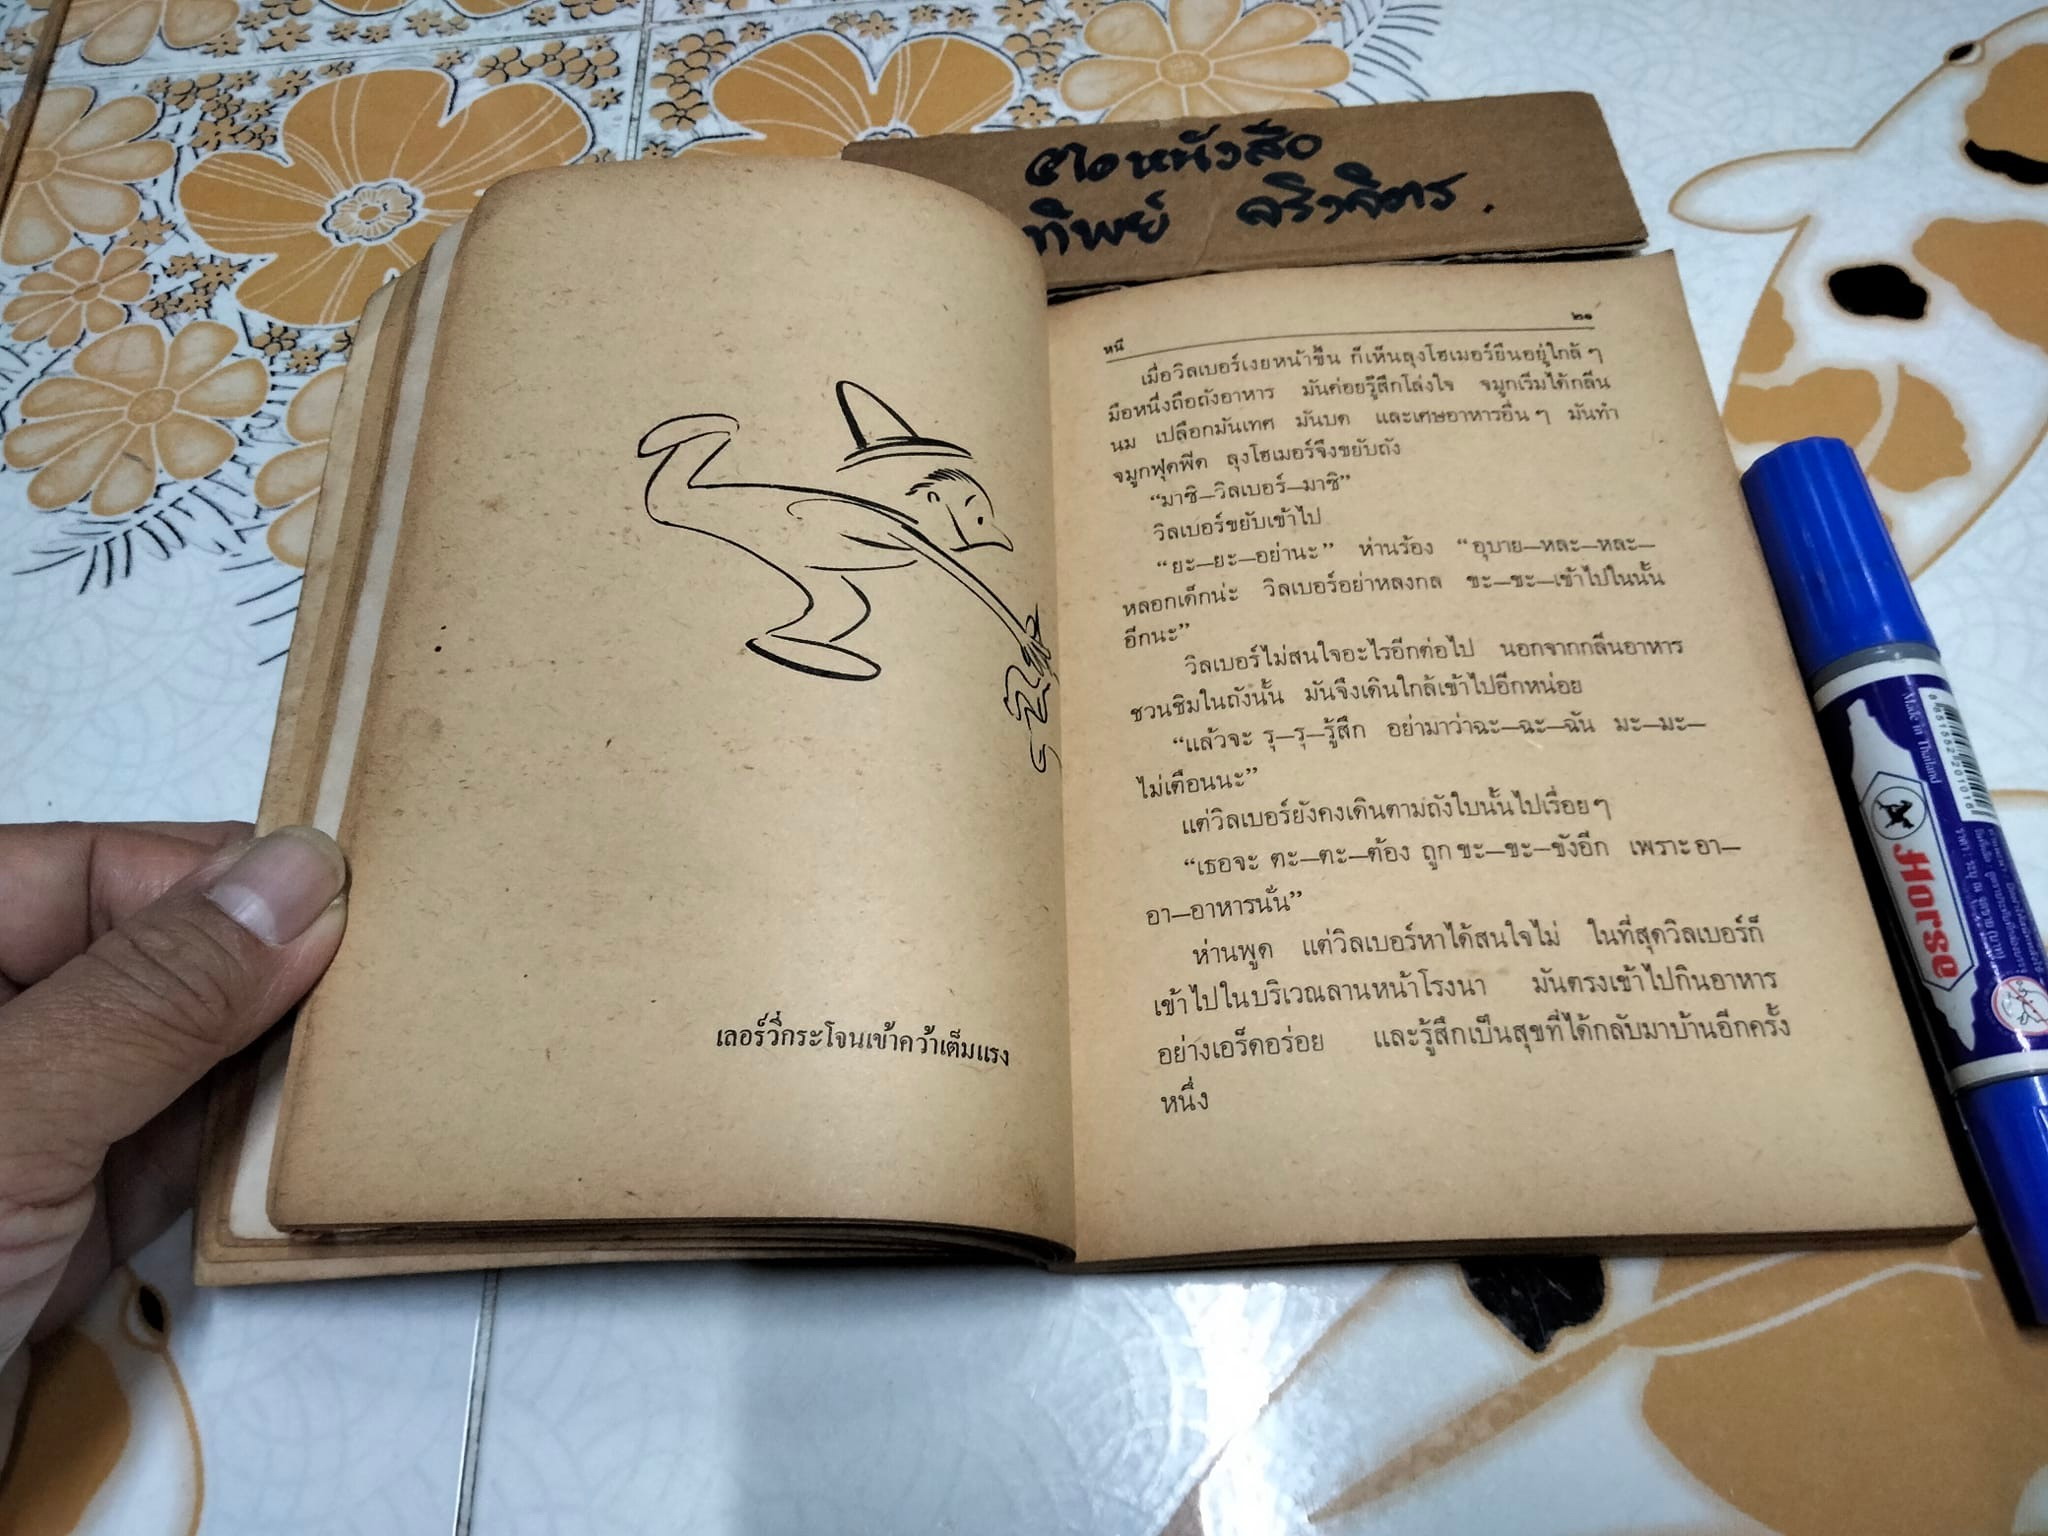 ทิพย์ จริงจิตร.
เลอร์วี่กระโจนเข้าคว้าเต็มแรง
หนี
๒๑
เมื่อวิลเบอร์เงยหน้าขึ้น ก็เห็นลุงโฮเมอร์ยืนอยู่ใกล้ ๆ
มือหนึ่งถือถังอาหาร มันค่อยรู้สึกโล่งใจ จมูกเริ่มได้กลิ่น
นม เปลือกมันเทศ มันบด และเศษอาหารอื่น ๆ มันทำ
จมูกฟุดฟิด ลุงโฮเมอร์จึงขยับถัง
“มาซิ—วิลเบอร์—มาซิ”
วิลเบอร์ขยับเข้าไป
“ยะ—ยะ—อย่านะ” ห่านร้อง “อุบาย—หละ—หละ—
หลอกเด็กน่ะ วิลเบอร์อย่าหลงกล ขะ—ขะ—เข้าไปในนั้น
อีกนะ”
วิลเบอร์ไม่สนใจอะไรอีกต่อไป นอกจากกลิ่นอาหาร
ชวนชิมในถังนั้น มันจึงเดินใกล้เข้าไปอีกหน่อย
“แล้วจะ รุ—รุ—รู้สึก อย่ามาว่าฉะ—ฉะ—ฉัน มะ—มะ—
ไม่เตือนนะ”
แต่วิลเบอร์ยังคงเดินตามถังใบนั้นไปเรื่อย ๆ
“เธอจะ ตะ—ตะ—ต้อง ถูก ขะ—ขะ—ขังอีก เพราะ อา—
อา—อาหารนั่น”
ห่านพูด แต่วิลเบอร์หาได้สนใจไม่ ในที่สุดวิลเบอร์ก็
เข้าไปในบริเวณลานหน้าโรงนา มันตรงเข้าไปกินอาหาร
อย่างเอร็ดอร่อย และรู้สึกเป็นสุขที่ได้กลับมาบ้านอีกครั้ง
หนึ่ง
Made in Thailand
Horse